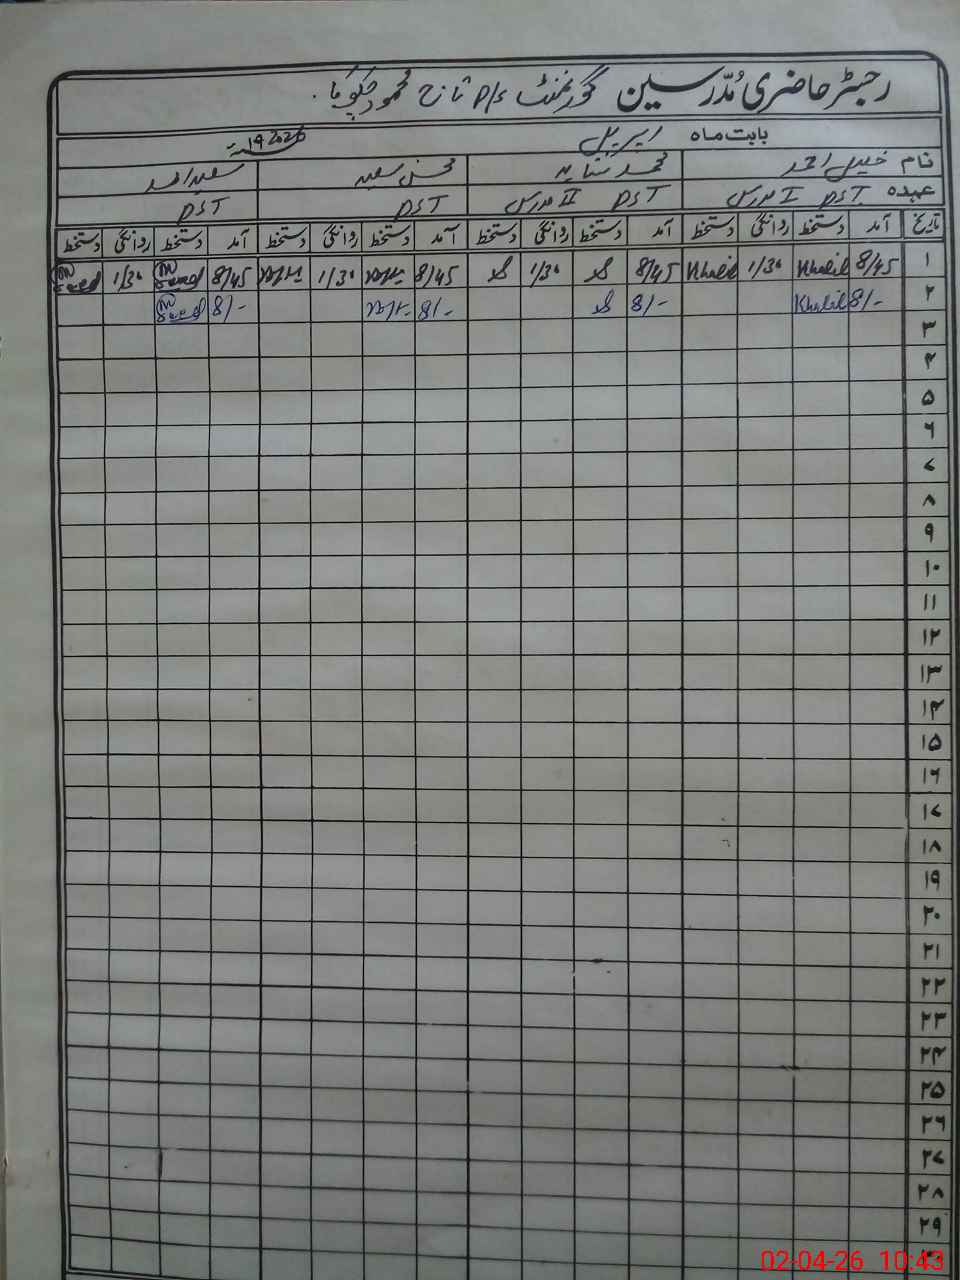 رجسٹر حاضری مُدّرسین گورنمنٹ P/S تازح محمود
بابت ماہ اپریل 19 2026ء
نام خلیل احمد محمد محسن سعید سعید احمد
عہدہ PST I مدرس PST II مدرس PST PST
تاریخ آمد دستخط روانگی دستخط آمد دستخط روانگی دستخط آمد دستخط روانگی دستخط آمد دستخط روانگی دستخط
۱ 8/45 Khalil 1/30 Khalil 8/45 1/30 8/45 1/30 8/45 Saeed 1/30 Saeed
۲ 8/- Khalil 8/- 8/- 8/- Saeed
۳
۴
۵
۶
۷
۸
۹
۱۰
۱۱
۱۲
۱۳
۱۴
۱۵
۱۶
۱۷
۱۸
۱۹
۲۰
۲۱
۲۲
۲۳
۲۴
۲۵
۲۶
۲۷
۲۸
۲۹
۳۰
02-04-26 10:43